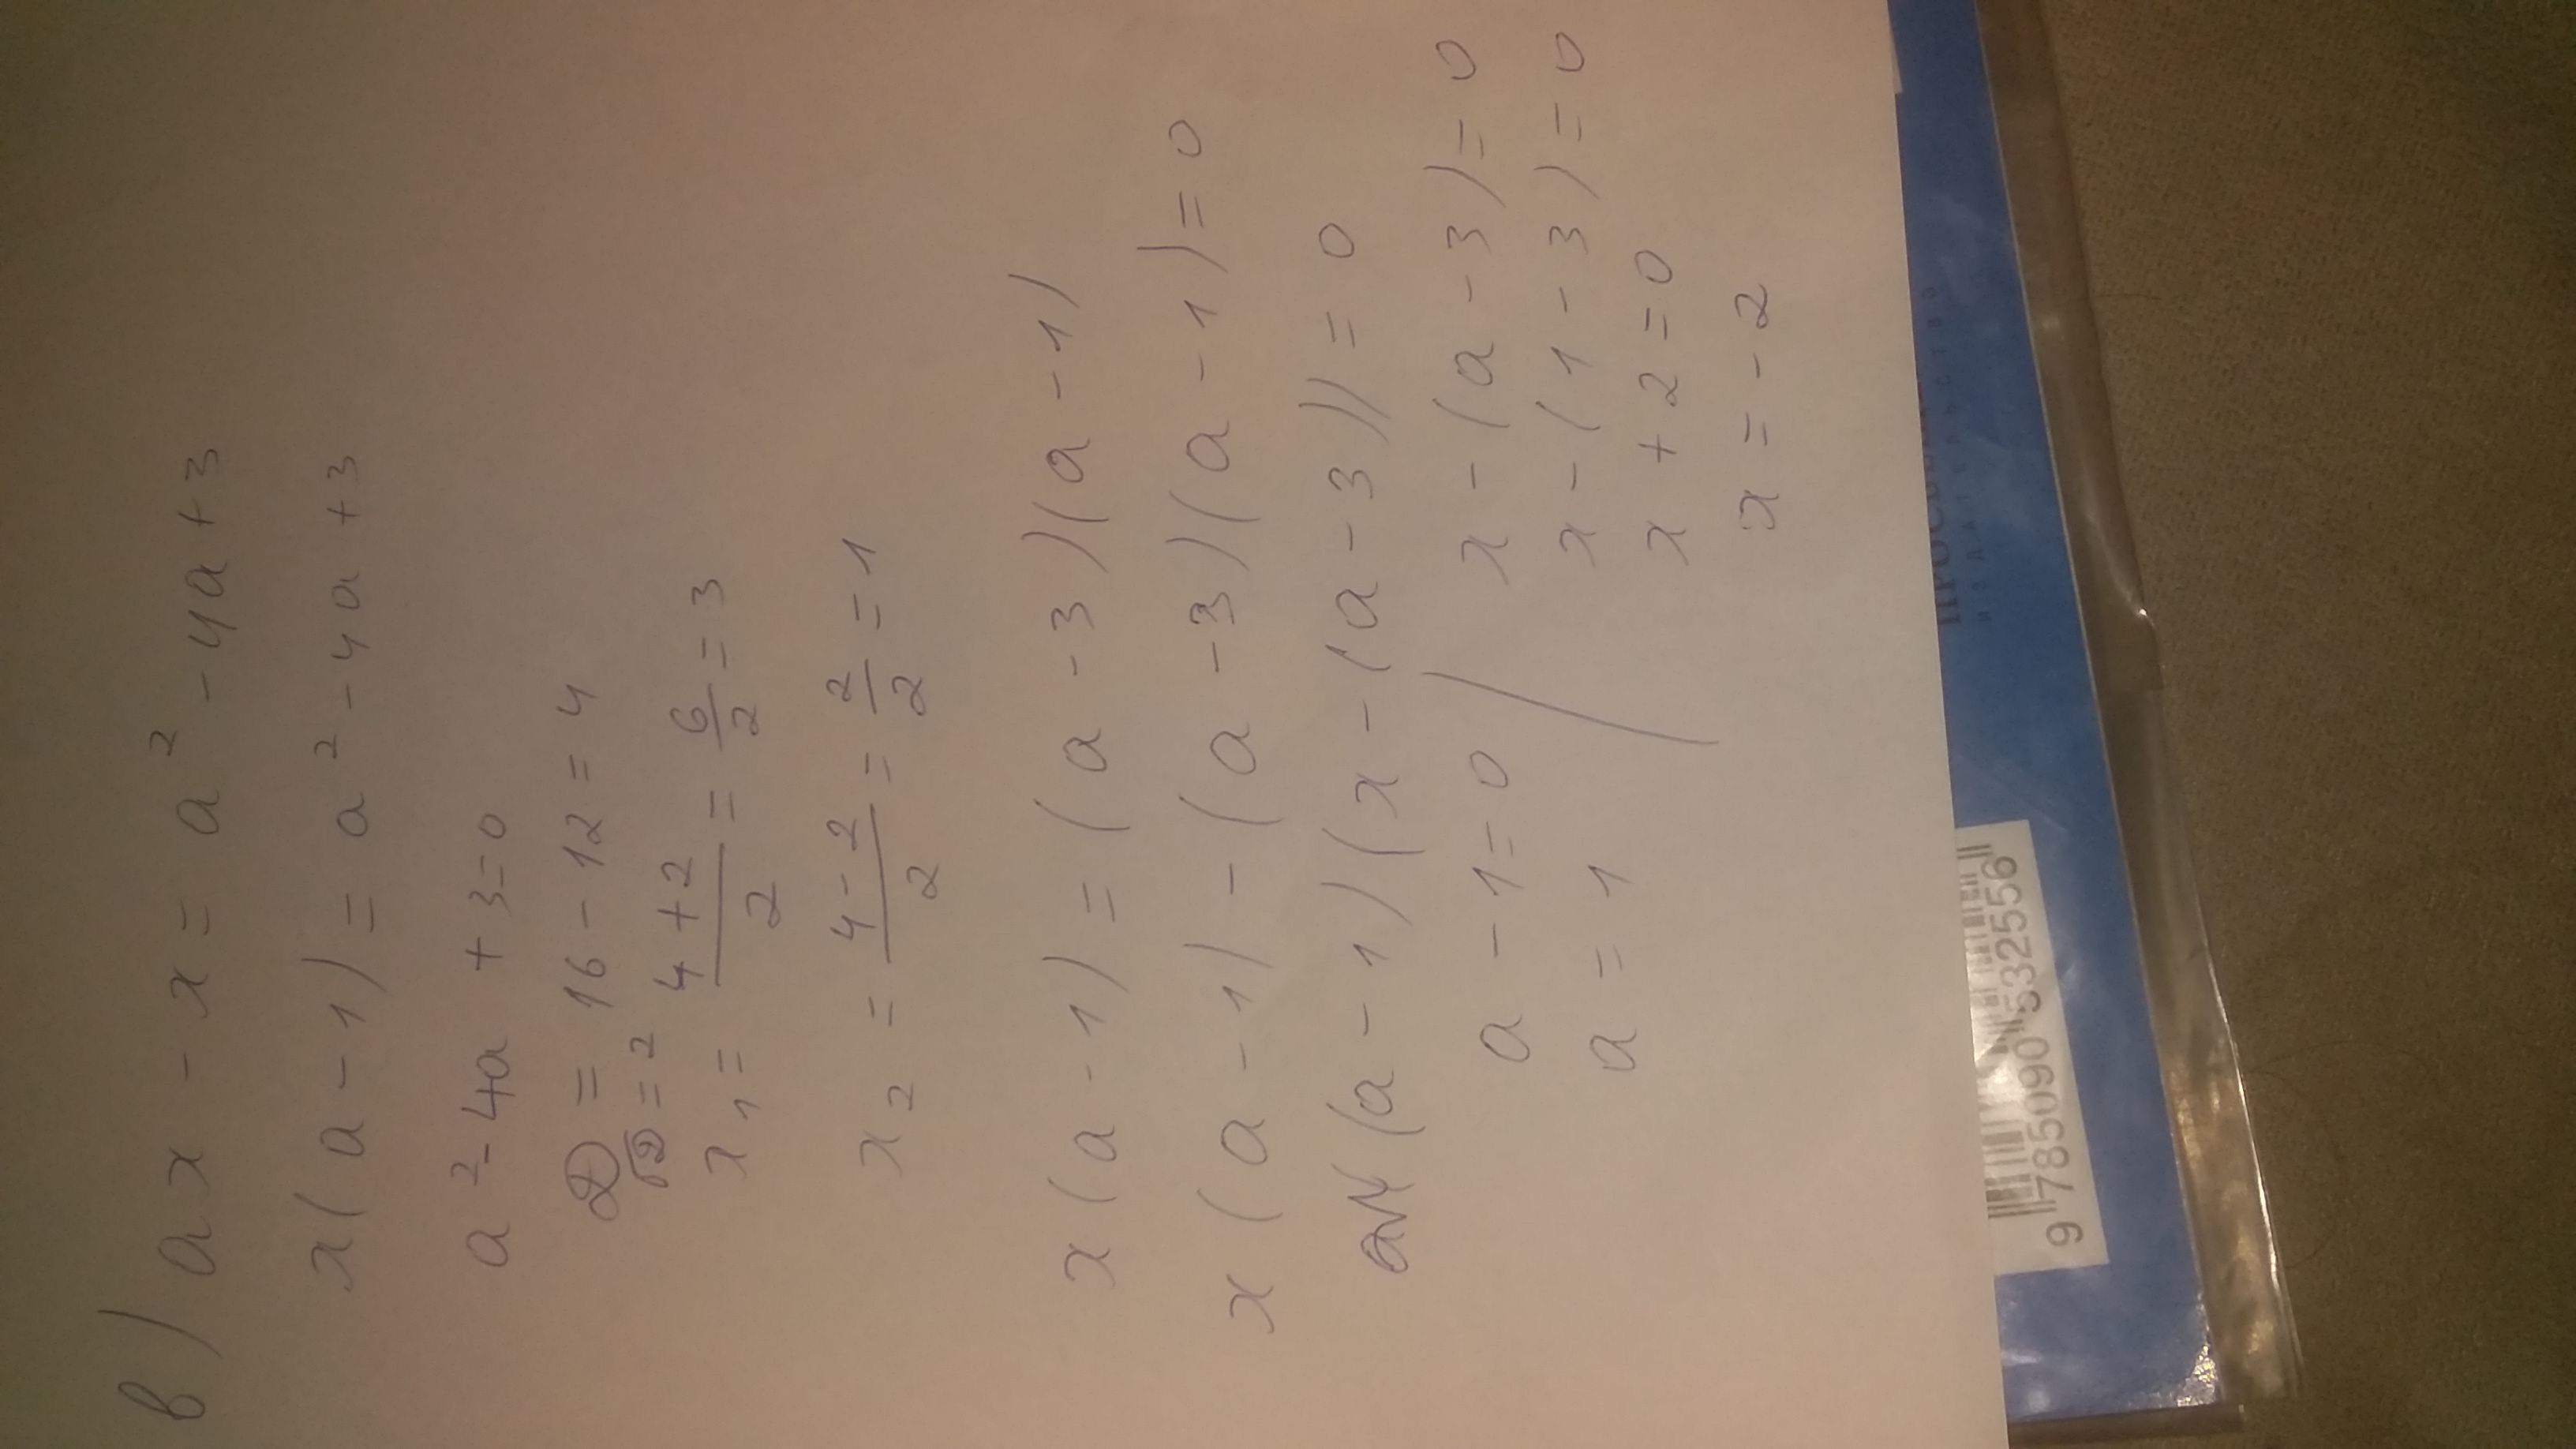 в) ax - x = a² - 4a + 3
x(a - 1) = a² - 4a + 3
a² - 4a + 3 = 0
D = 16 - 12 = 4
√D = 2
x₁ = (4 + 2)/2 = 6/2 = 3
x₂ = (4 - 2)/2 = 2/2 = 1
x(a - 1) = (a - 3)(a - 1)
x(a - 1) - (a - 3)(a - 1) = 0
(a - 1)(x - (a - 3)) = 0
a - 1 = 0 / x - (a - 3) = 0
a = 1 x - (1 - 3) = 0
x + 2 = 0
x = - 2
9 785090 532556